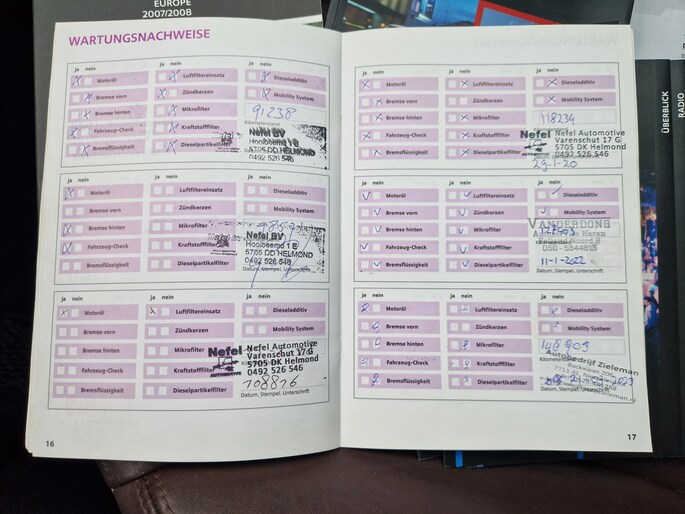 EUROPE
2007/2008
WARTUNGSNACHWEISE
ja nein
ja nein
ja nein
Motoröl
Luftfiltereinsatz
Dieseladditiv
Bremse vorn
Zündkerzen
Mobility System
Bremse hinten
Mikrofilter
91238
Kilometerstand
Fahrzeug-Check
Kraftstofffilter
Nefel BV
Hooibeemd 1 B
Bremsflüssigkeit
Dieselpartikelfilter
5705 DD HELMOND
0492 526 546
ja nein
ja nein
ja nein
Motoröl
Luftfiltereinsatz
Dieseladditiv
Bremse vorn
Zündkerzen
Mobility System
Bremse hinten
Mikrofilter
Nefel BV
Hooibeemd 1 B
Fahrzeug-Check
Kraftstofffilter
5705 DD HELMOND
0492 526 546
Bremsflüssigkeit
Dieselpartikelfilter
Datum, Stempel, Unterschrift
ja nein
ja nein
ja nein
Motoröl
Luftfiltereinsatz
Dieseladditiv
Bremse vorn
Zündkerzen
Mobility System
Bremse hinten
Mikrofilter
Nefel Automotive
Varenschut 17 G
Fahrzeug-Check
Kraftstofffilter
5705 DK Helmond
AUTOMOTIVE
0492 526 546
Bremsflüssigkeit
Dieselpartikelfilter
108876
Datum, Stempel, Unterschrift
16
ja nein
ja nein
ja nein
Motoröl
Luftfiltereinsatz
Dieseladditiv
Bremse vorn
Zündkerzen
Mobility System
Bremse hinten
Mikrofilter
118234
Fahrzeug-Check
Kraftstofffilter
Nefel
Nefel Automotive
Varenschut 17 G
Bremsflüssigkeit
Dieselpartikelfilter
AUTOMOTIVE
5705 DK Helmond
0492 526 546
29-1-20
ja nein
ja nein
ja nein
Motoröl
Luftfiltereinsatz
Dieseladditiv
Bremse vorn
Zündkerzen
Mobility System
Bremse hinten
Mikrofilter
VANDERDONG
Haren
Noord 8
Fahrzeug-Check
Kraftstofffilter
050 - 5344813
Bremsflüssigkeit
Dieselpartikelfilter
11-1-2022
Datum, Stempel, Unterschrift
ja nein
ja nein
ja nein
Motoröl
Luftfiltereinsatz
Dieseladditiv
Bremse vorn
Zündkerzen
Mobility System
Bremse hinten
Mikrofilter
146903
Fahrzeug-Check
Kraftstofffilter
Autobedrijf Zieleman
Bremsflüssigkeit
Dieselpartikelfilter
17
ÜBERBLICK
RADIO